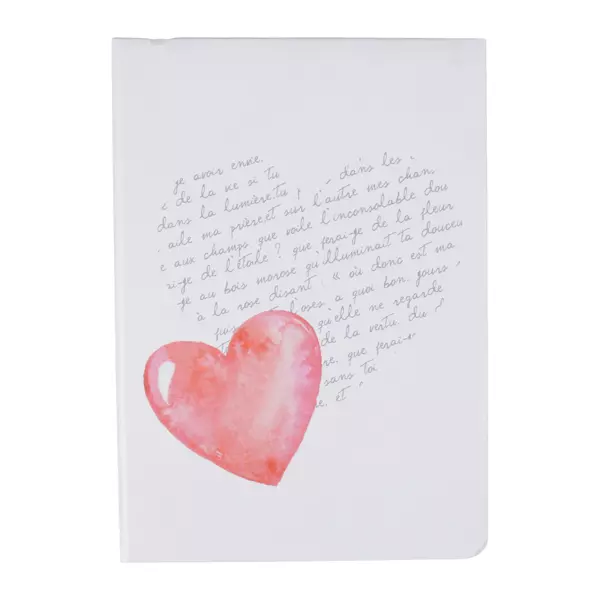 je avoir envie,
" de la vie si tu dans les
dans la lumière, tu l'autre mes chan,
aile ma prière, et sur l'inconsolable dou
e aux champs que voile de la fleur
ui-je de l'étoile? que ferai-je ta douceu
je au bois morose qu'illuminait ma
à la rose disant: " où donc est
l'ose, à quoi bon, jours
qu'elle ne regarde
de la vertu, du
que ferai-
sans toi
et